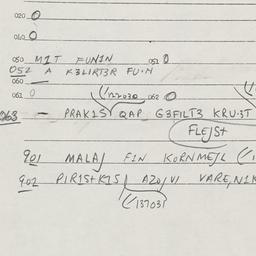 020 0
040 0
050 MIT FUNIN 051 0
052 A K3LIRT3R FU·N
060 —
061 0 (/137030 062 0
063 — PRAKIS QAP G3FILT3 KRU·3T
FLEJST
901 MALAJ FIN KORNMEJL
902 PIRISTKIS AZOJVI VARE,NIK
(/137031